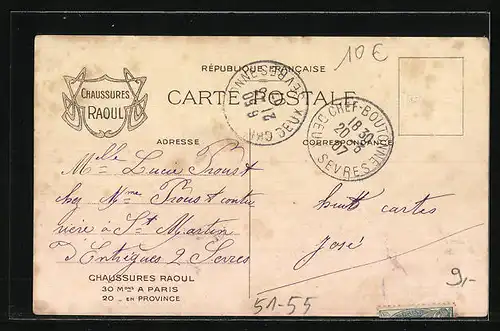 10 €
RÉPUBLIQUE FRANÇAISE
CHAUSSURES
RAOUL
CARTE POSTALE
CHEF-BOUTONNE
18 30
20 - 6
07
DEUX SEVRES
ADRESSE
CORRESPONDANCE
Melle Lucie Proust
chez Mme Proust coutu
rière à St Martin
d'Entraigues 2 Sevres
huit cartes
José
CHAUSSURES RAOUL
30 Mons A PARIS
20 _ EN PROVINCE
51-55
9,-